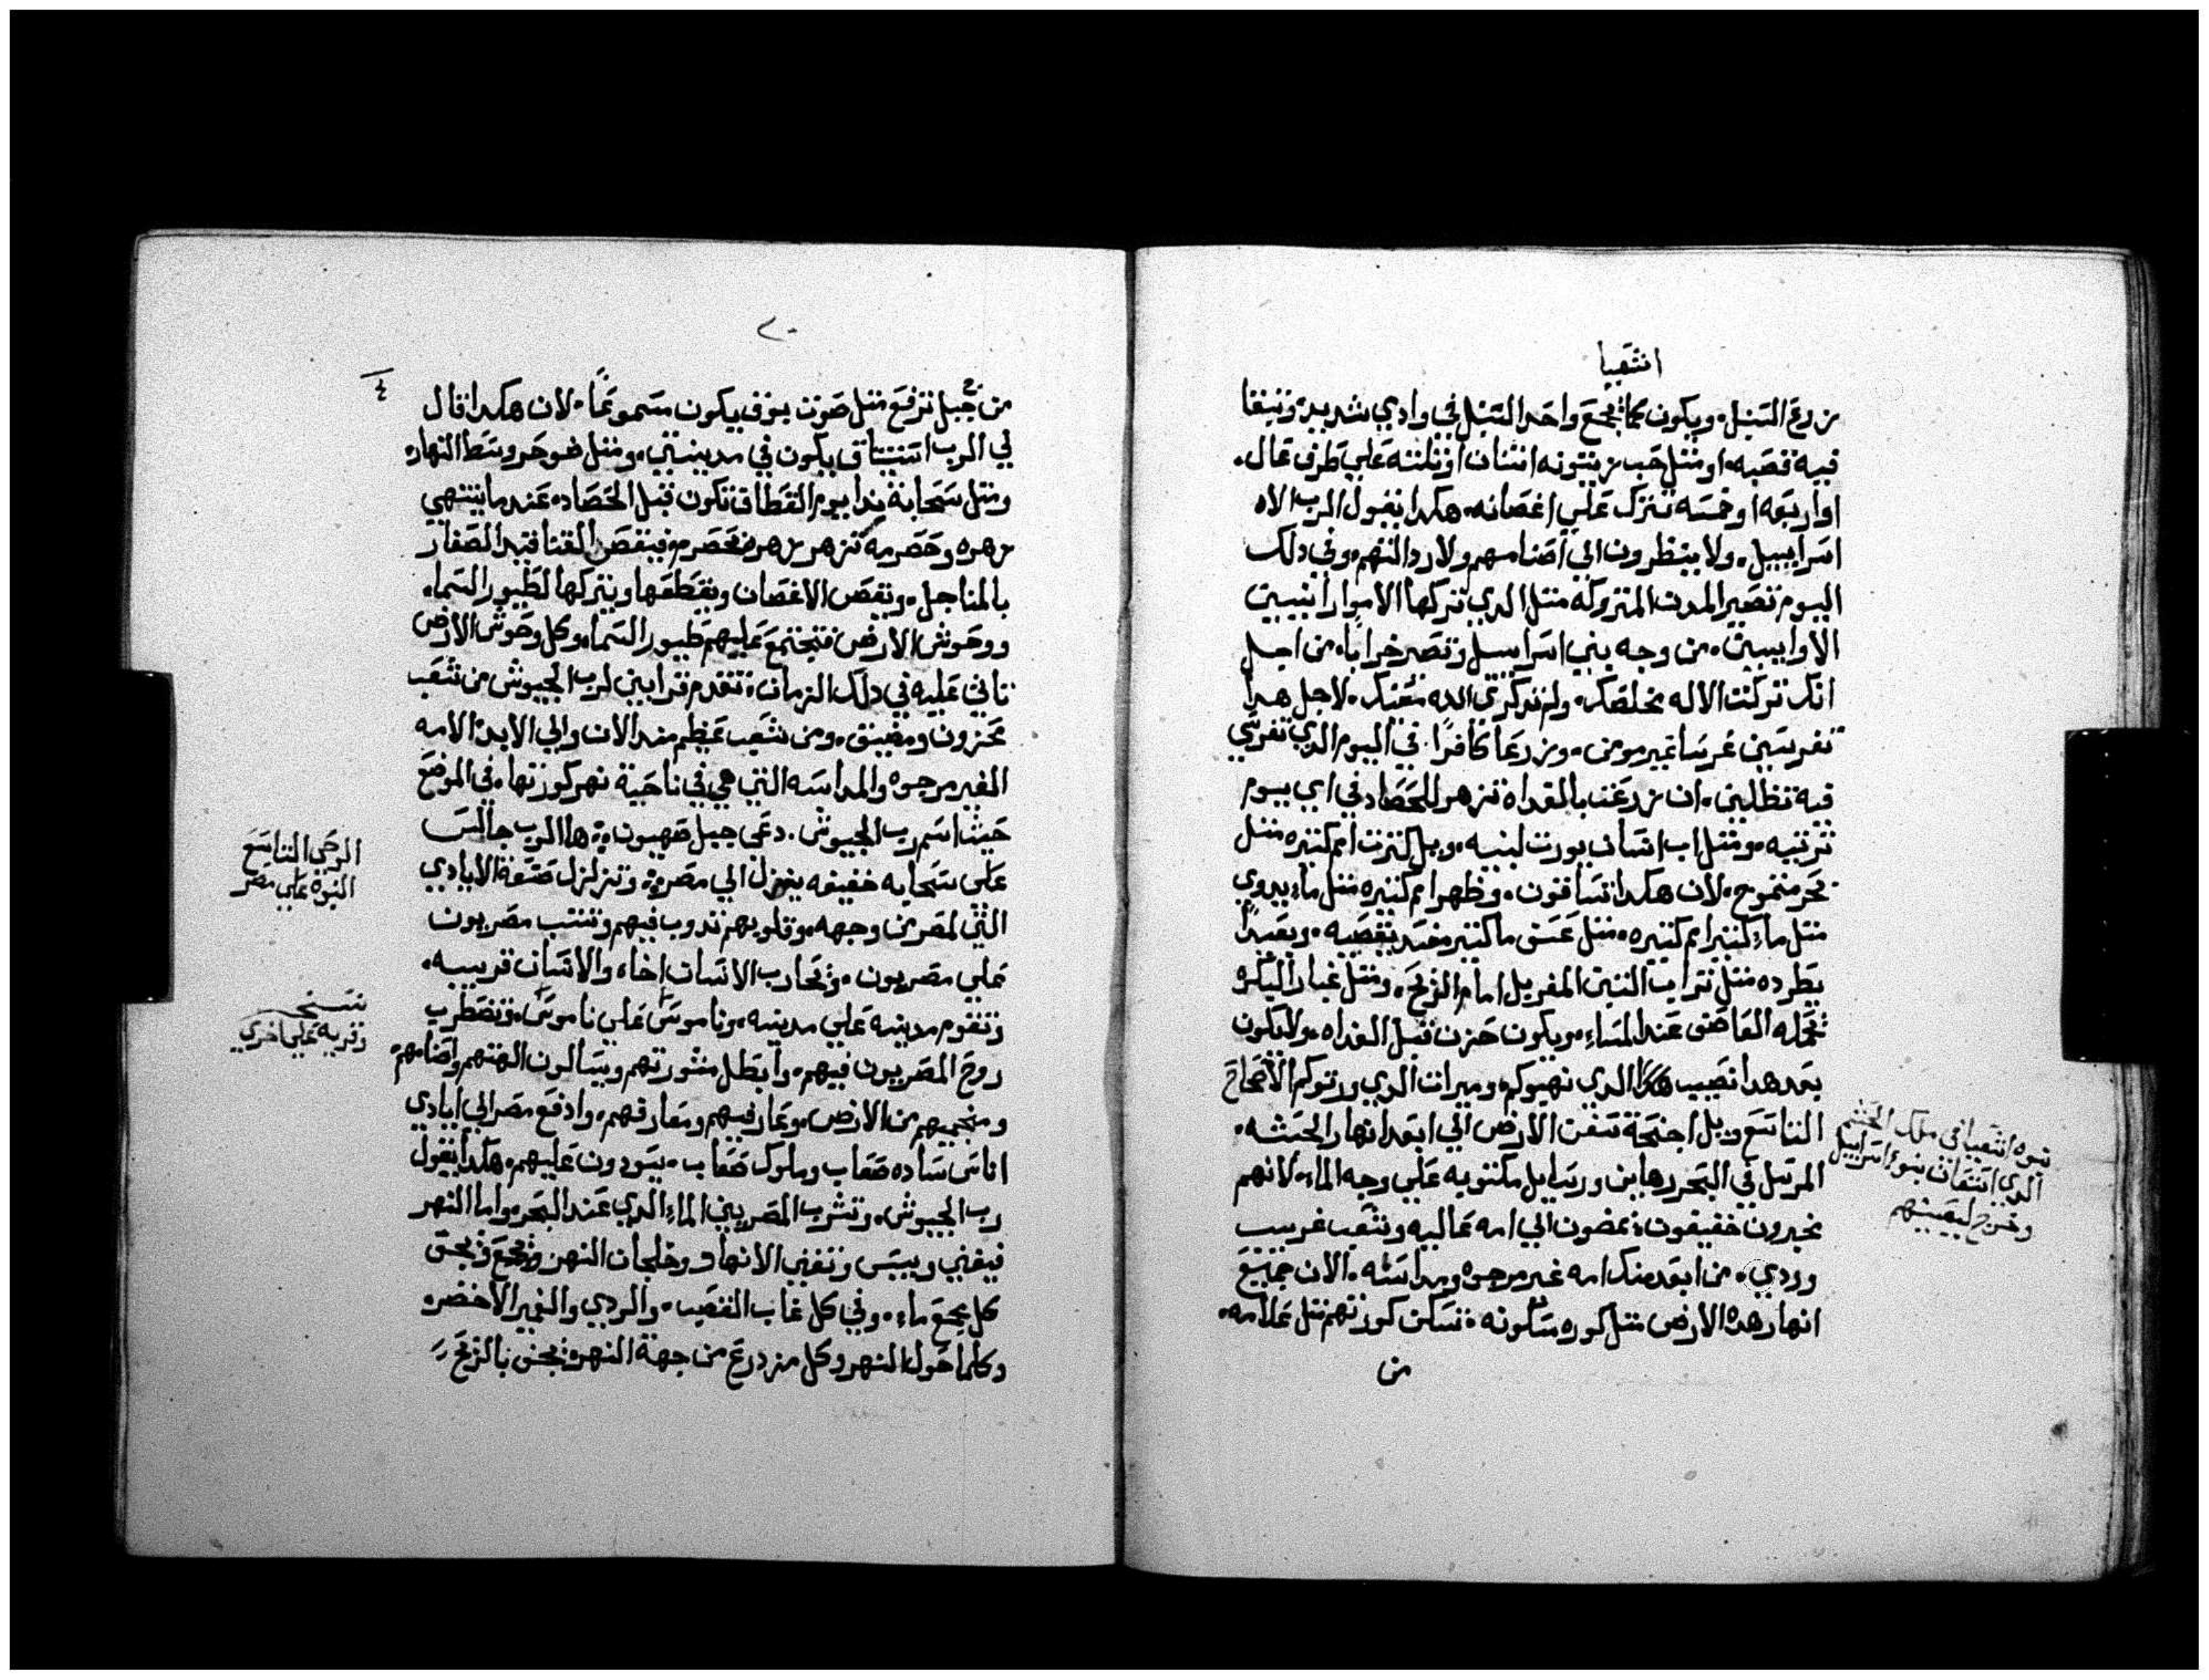 اشعيا
زرع السبل. ويكون كما يجمع واحد السبل في وادي شديد. وتبقا
فيه قصبه. او مثل حب زيتونه اثنتان او ثلثه علي طرف عال.
او اربعه او خمسه تترك علي اغصانه. هكدا يقول الرب الاه
اسراييل. ولا ينظرون الي اصنامهم ولا ردالتهم. وفي دلك
اليوم تصير المدن المتروكه مثل الدي تركها الاموارانيين
الاواييين. من وجه بني اسراييل وتصر خرابا. من اجل
انك تركت الاله مخلصك. ولم تدكري الله معنك. لاجل هدا
تغرسين غرسا غير مومن. وزرعا كافرا. في اليوم الدي تغرسي
فيه تظلين. ان زرعت بالغداه تزهر للحصاد في اي يوم
ترتبيه. ومثل اب انسان يورث لبنيه. ويل لكترت امم كتيره مثل
بحر متموج. لان هكدا تساقون. وظهر امم كتيره مثل ماء يدوي
مثل ماء كتير امم كتيره. مثل عسق ما كتير مضد بغصبه. وبعيدا
يطرده مثل تراب التبن المغربل امام الريح. ومثل غبار البكره
تحمله العاصف عند المساء. ويكون حزن قبل الغداه. ولا يكون
بعد هدا نصيب هكدا الدي نهبوكم. وميرات الدي ورتوكم الاصحاح
التاسع ويل اجنحة سفن الارض الي ابعد انهار الحبشه.
المرسل في البحر رهاين ورسايل مكتوبه علي وجه الماء. لانهم
يخبرون خفيفون. يمضون الي امه عاليه وشعب غريب
وردي. من ابعد منك امه غير مرجوه ومداسه. الان جميع
انهار هده الارض مثل كوره مسكونه. تسكن كورتهم مثل علامه.
من
نبوه اشعيا في ملك الحبشه
الدي استعان بنو اسراييل
وخرج ليعينهم
٢٠
٤
من جبل ترفع مثل صوت بوق يكون مسموعا. لان هكدا قال
لي الرب استيتاق يكون في مدينتي. ومثل ضو حر وسط النهار.
ومثل سحابة ندا يوم القطاف تكون قبل الحصاد. عند ما ينتهي
زهره وحصرمه تزهر زهره محصرم. فينقص القنا قيد الصغار
بالمناجل. ويقص الاغصان ويقطعها ويتركها لطيور السماء.
ووحوش الارض فتجتمع عليهم طيور السماء. وكل وحوش الارض
تاتي عليه في دلك الزمان. تقدم قرابين لرب الجيوش من شعب
محزون ومضيق. ومن شعب عظيم مند الان والي الابد. الامه
الغير مرجوه والمداسه التي هي في ناحية نهر كورتها. في الموضع
حيث اسم رب الجيوش. دعي جبل صهيون. ها الرب جالس
علي سحابه خفيفه ينزل الي مصر. وتزلزل صنعة الايادي
التي لمصر من وجهه. وقلوبهم تدوب فيهم وتنتب مصريون
علي مصريون. وتحارب الانسان اخاه والانسان قريبه.
وتقوم مدينه علي مدينه. وناموس علي ناموس. وتضطرب
روح المصريون فيهم. وابطل مشورتهم ويسالون الهتهم واصنامهم
ومنجميهم من الارض. وعارفيهم ومعارفهم. وادفع مصر الي ايادي
اناس ساده صعاب وملوك صعاب. يسودون عليهم. هكدا يقول
رب الجيوش. وتشرب المصريين الماء الدي عند البحر. واما النهر
فيفني وييبس وتفني الانهار وخلجان النهر. وتجمع وتجف
كل مجمع ماء. وفي كل غاب القصب. والردي والنمير الاخضر.
وكلما حول النهر وكل مزدرع من جهة النهر. تجف بالريح
الوحي التاسع
النبوه علي مصر
نسخه
وقريه علي اخري